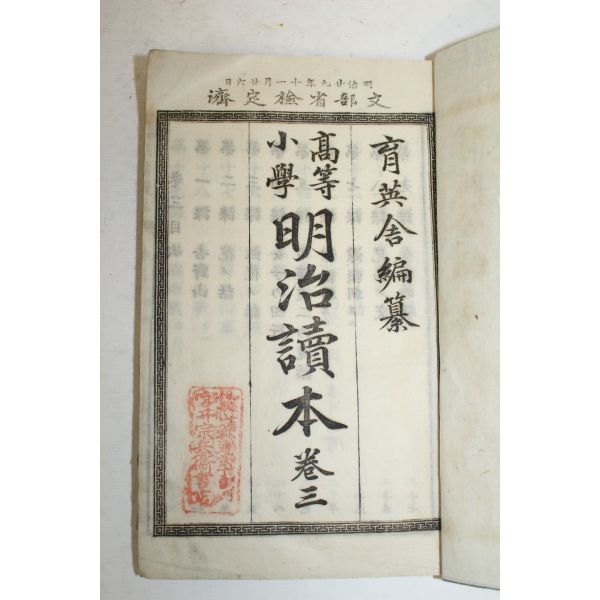 明治廿九年十一月廿六日
文部省檢定濟
育英舎編纂
高等
小學
明治讀本 卷三